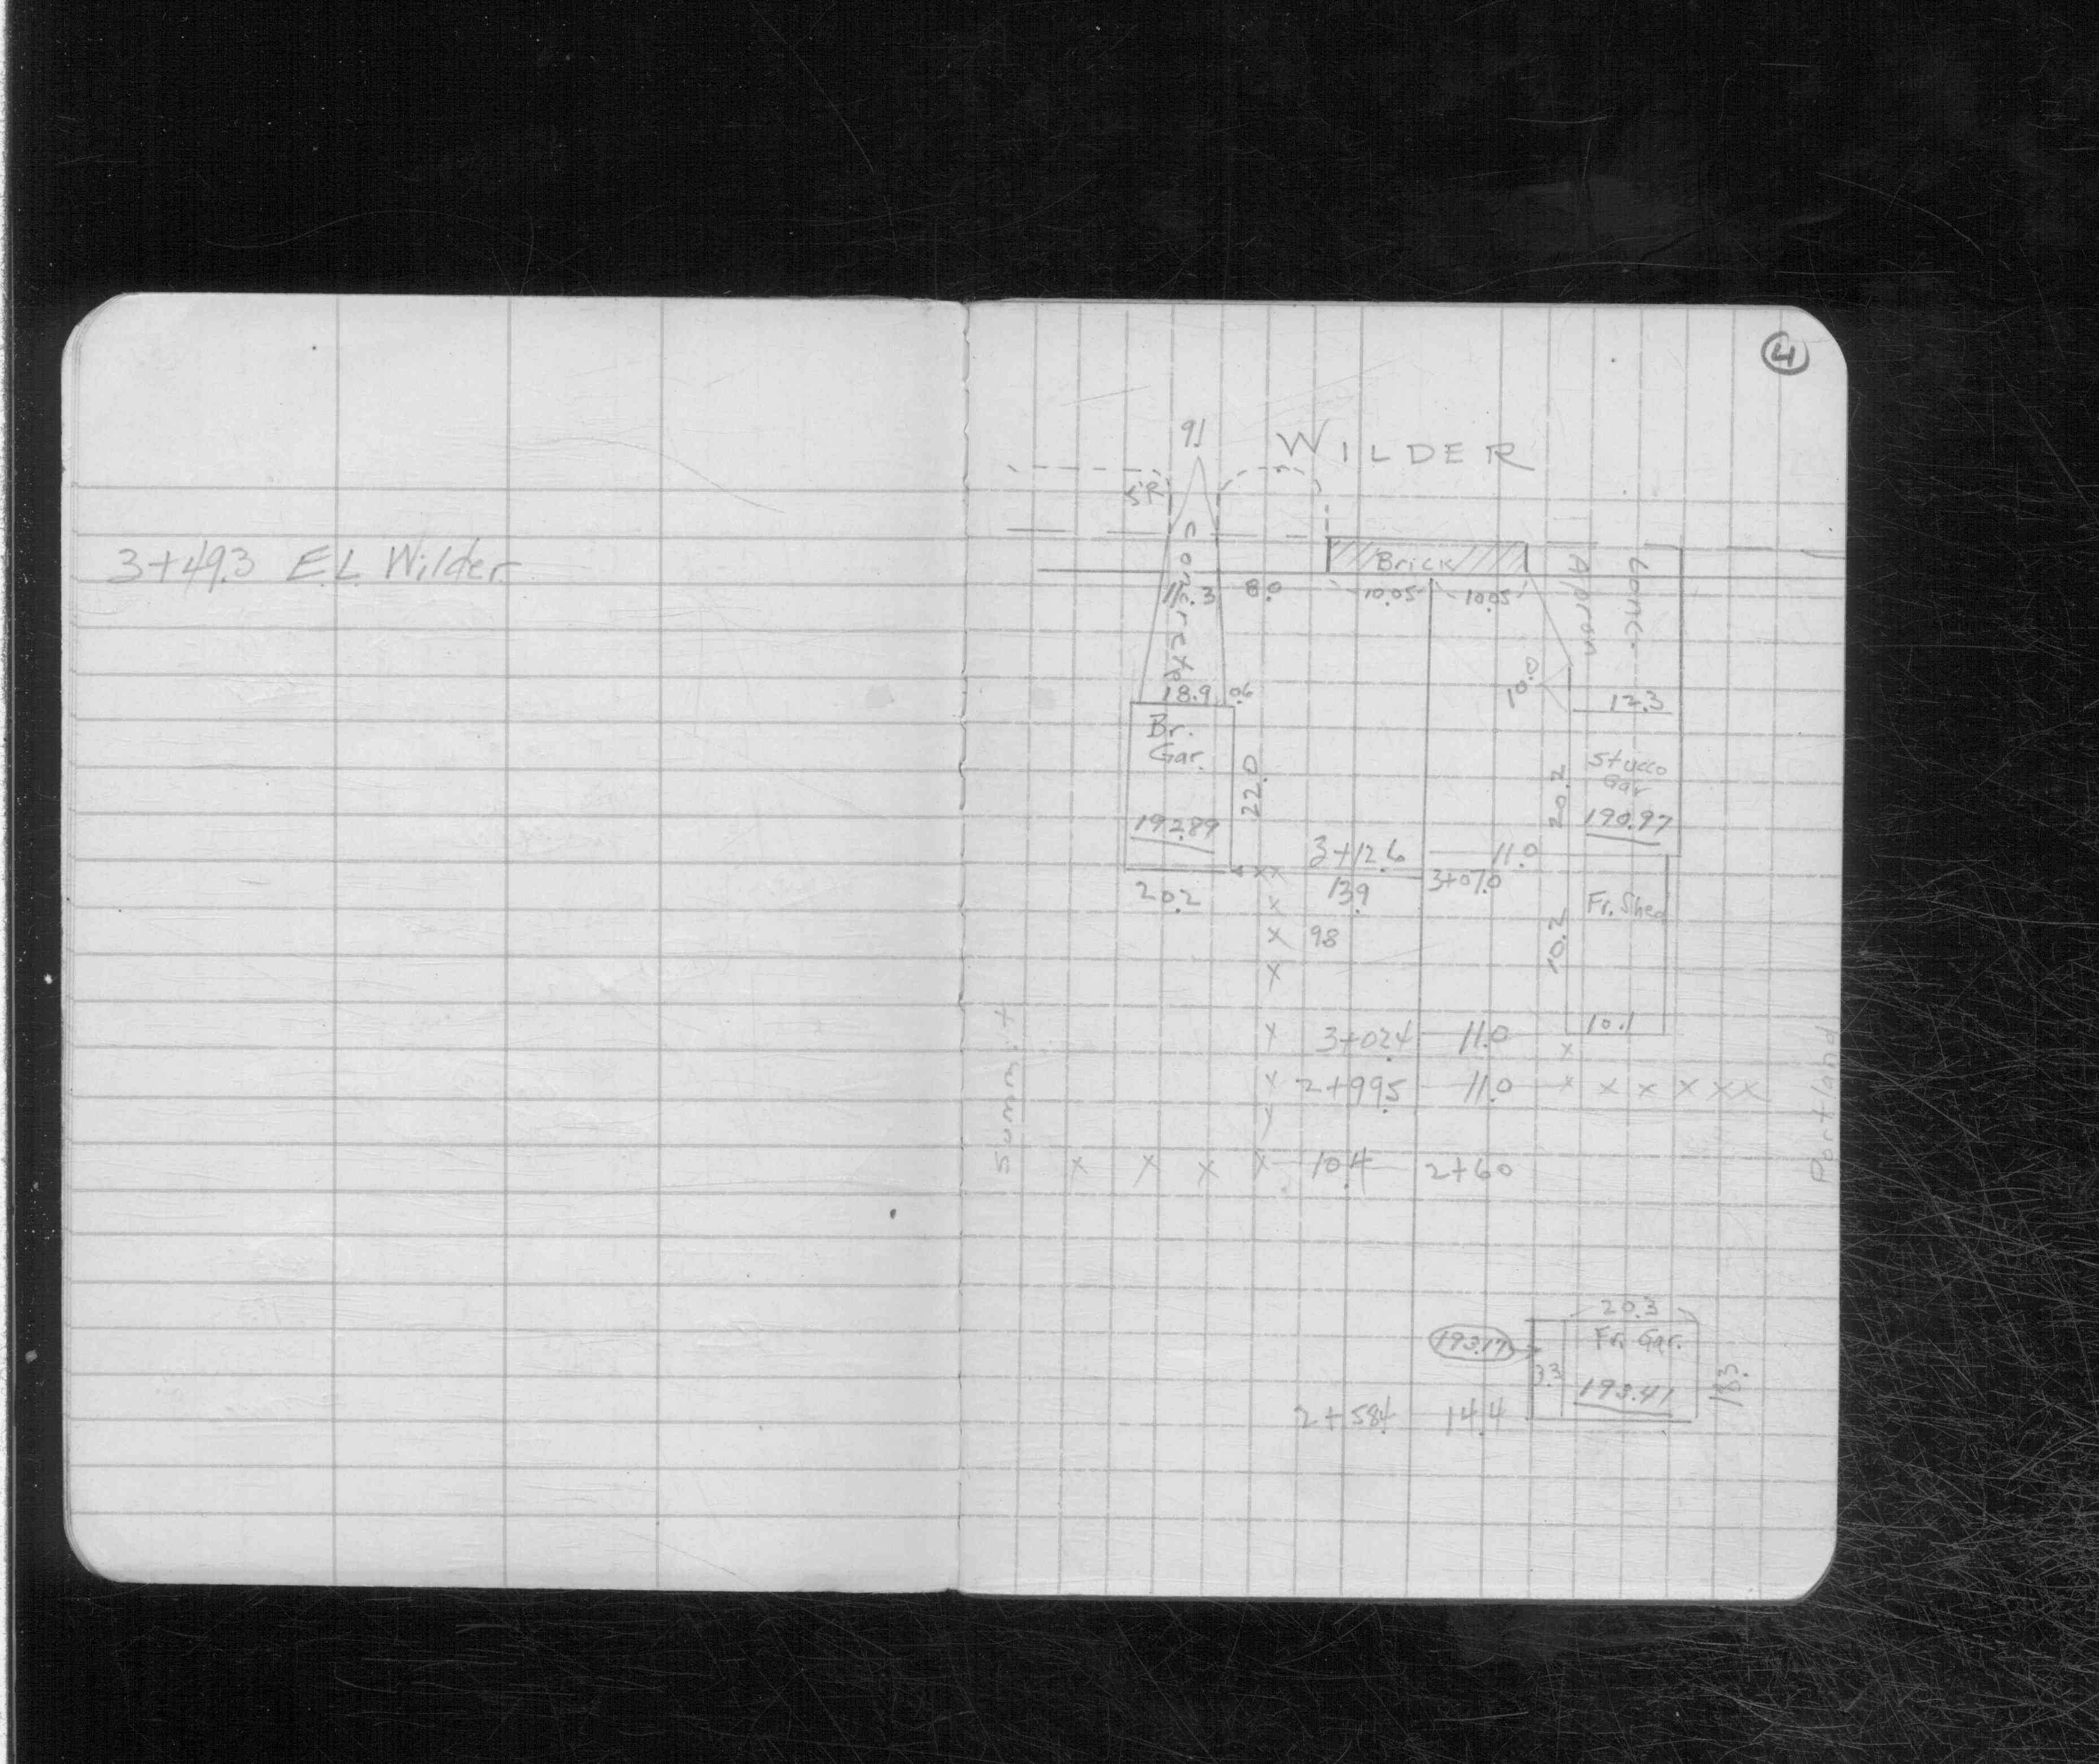 4
91
WILDER
5'R
3+49.3 E.L. Wilder
Brick
Conc.
Apron
Concrete
8.0
10.05
10.05
10.0
18.9
0.6
12.3
Br.
Gar.
22.0
192.89
20.2
Stucco
Gar
20.2
190.97
3+12.6
11.0
13.9
3+07.0
Fr. Shed
9.8
10.2
10.1
3+02.4
11.0
2+99.5
11.0
Summit
Portland
10.4
2+60
20.3
193.17
Fr. Gar.
3.3
193.41
18.3
2+58.4
14.4